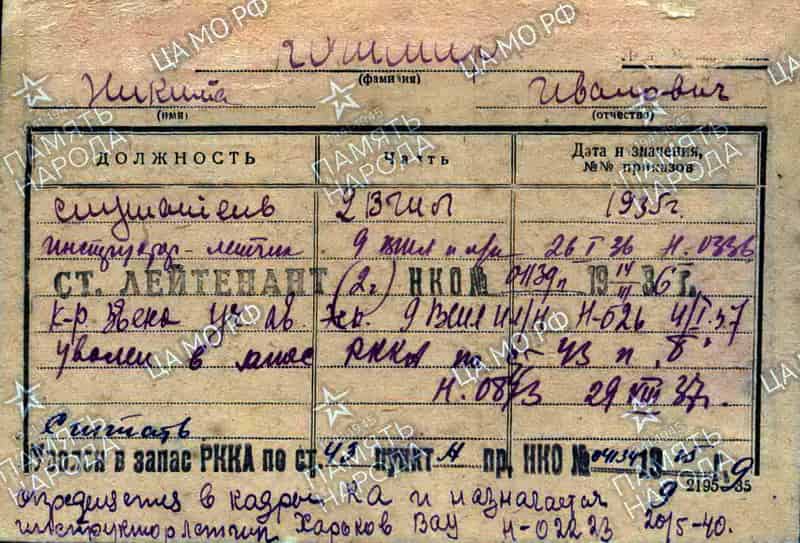 (фамилия)
Никита Иванович
(имя) (отчество)
ДОЛЖНОСТЬ Часть Дата и значения, №№ приказов
слушатель 2 ВШЛ 1935г.
инструктор-летчик 9 26 I 36 Н.0336
СТ. ЛЕЙТЕНАНТ (2г) НКО № 0113 19 36 г.
К-р Звена уч. ав. эск. 9 Н-026 4/I.37
Уволен в запас РККА по ст 43 п. "б"
Н. 0873 29 VIII 37г.
Считать
Уволен в запас РККА по ст. 43 пункт А пр. НКО № 19 г.
2195-35
определяется в кадры КА и назначается
инструктор летчик Харьков Вау Н-02223 20/5-40.
ЦАМО.РФ
ПАМЯТЬ НАРОДА